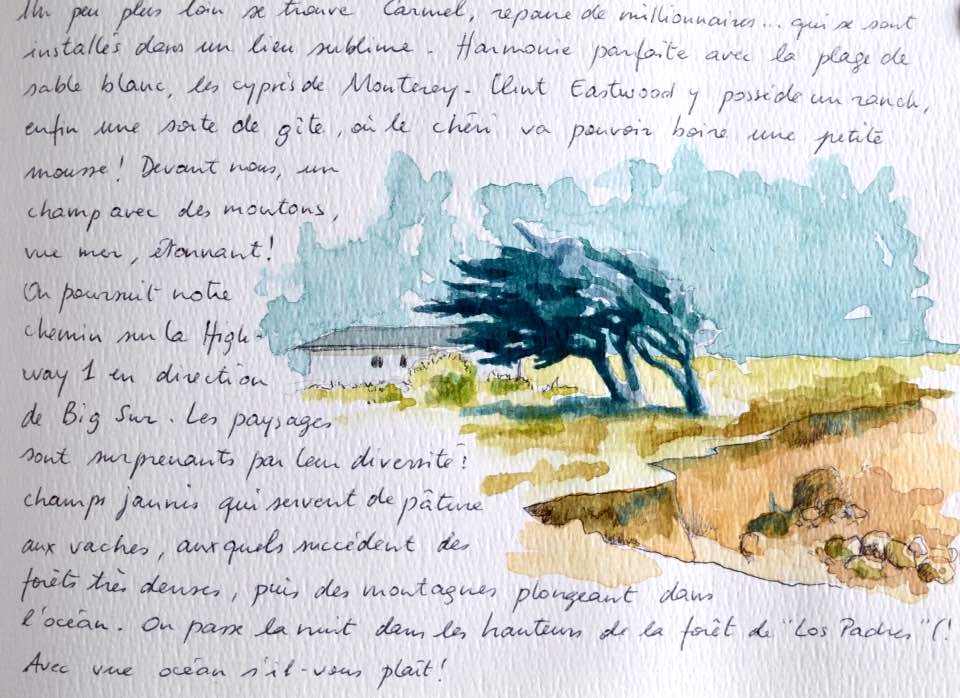 Un peu plus loin se trouve Carmel, repaire de millionnaires... qui se sont
installés dans un lieu sublime. Harmonie parfaite avec la plage de
sable blanc, les cyprès de Monterey. Clint Eastwood y possède un ranch,
enfin une sorte de gîte, où le chéri va pouvoir boire une petite
mousse! Devant nous, un
champ avec des moutons,
vue mer, étonnant!
On poursuit notre
chemin sur la High-
way 1 en direction
de Big Sur. Les paysages
sont surprenants par leur diversité:
champs jaunis qui servent de pâture
aux vaches, auxquels succèdent des
forêts très denses, puis des montagnes plongeant dans
l'océan. On passe la nuit dans les hauteurs de la forêt de "Los Padres"(!
Avec vue océan s'il-vous plaît!